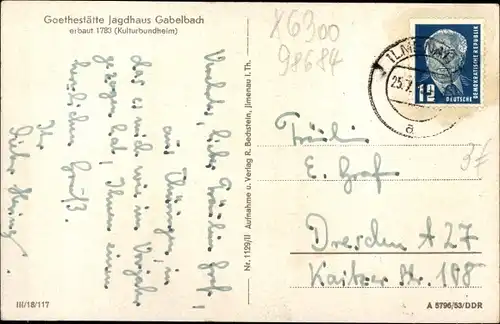 Goethestätte Jagdhaus Gabelbach
erbaut 1783 (Kulturbundheim)
X6300
98684
ILMENAU
25.7.
a
12
DEUTSCHE
DEMOKRATISCHE REPUBLIK
3€
Verehrtes, liebes Fräulein Graf!
aus Thüringen, in
das es mich wie im Vorjahr
gezogen hat, Ihnen einen
herzlichen Gruß.
Ihr
Nr. 1129/II Aufnahme u. Verlag R. Bechstein, Jlmenau i. Th.
Fräulein
E. Graf
Dresden A 27
Kaitzer Str. 108
III/18/117
A 5795/53/DDR